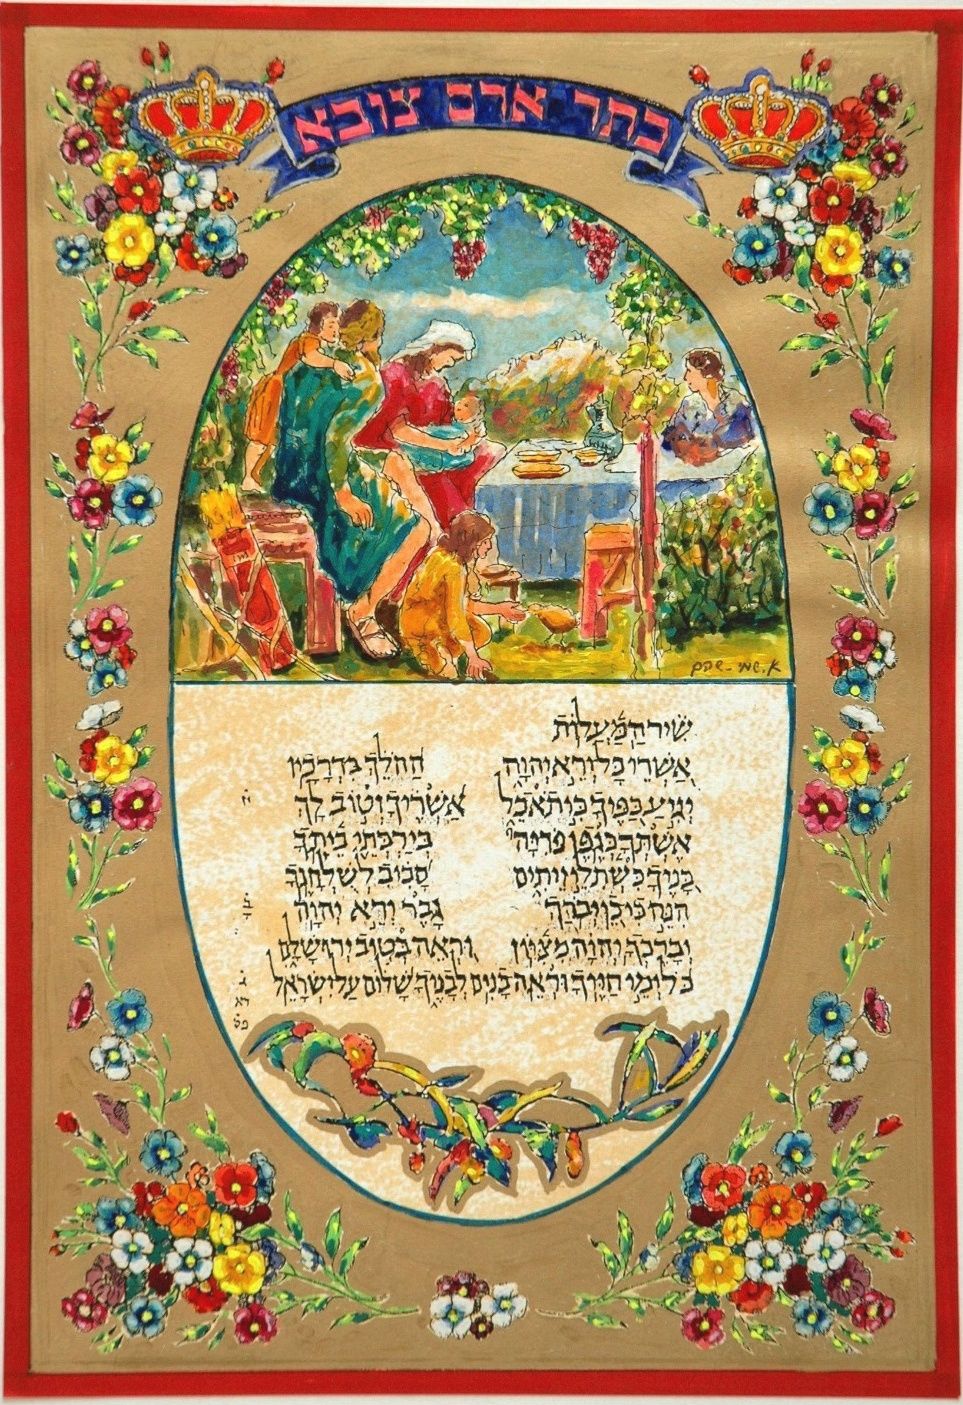 כתר ארם צובא
שִׁיר הַמַּעֲלוֹת
אַשְׁרֵי כָּל יְרֵא יְהוָה הַהֹלֵךְ בִּדְרָכָיו
יְגִיעַ כַּפֶּיךָ כִּי תֹאכֵל אַשְׁרֶיךָ וְטוֹב לָךְ
אֶשְׁתְּךָ כְּגֶפֶן פֹּרִיָּה בְּיַרְכְּתֵי בֵיתֶךָ
בָּנֶיךָ כִּשְׁתִלֵי זֵיתִים סָבִיב לְשֻׁלְחָנֶךָ
הִנֵּה כִי כֵן יְבֹרַךְ גָּבֶר יְרֵא יְהוָה
יְבָרֶכְךָ יְהוָה מִצִּיּוֹן וּרְאֵה בְּטוּב יְרוּשָׁלִָם
כֹּל יְמֵי חַיֶּיךָ וּרְאֵה בָנִים לְבָנֶיךָ שָׁלוֹם עַל יִשְׂרָאֵל